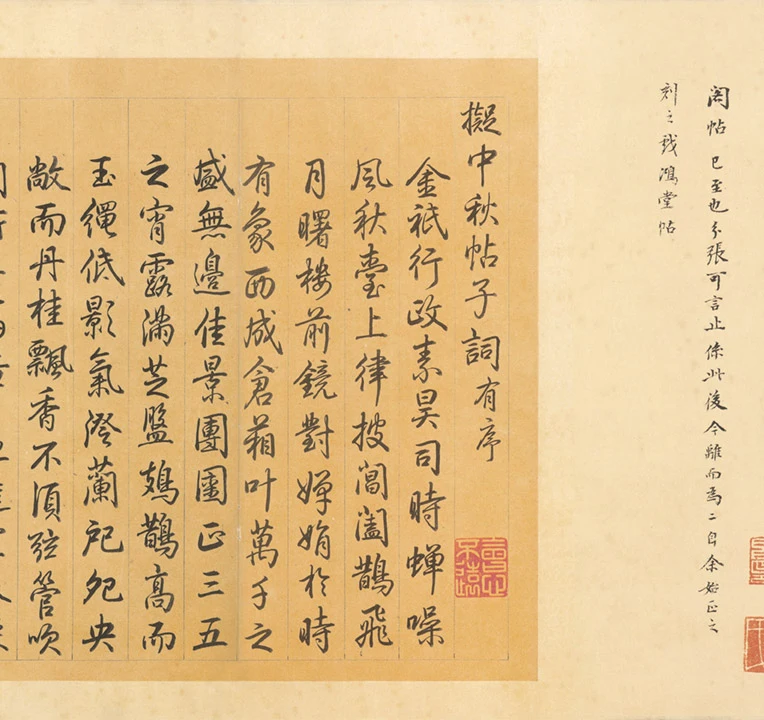 閣帖已至也分張可言止係此後今離而為二自余始正之
刻之戲鴻堂帖
擬中秋帖子詞有序
金祇行政素昊司時蟬噪
風秋臺上律披閶闔鵲飛
月曙樓前鏡對嬋娟於時
有象西成倉箱叶萬千之
盛無邊佳景團圞正三五
之宵露滿芝盤鳷鵲高而
玉繩低影氣澄蘭戺央
敞而丹桂飄香不須弦管